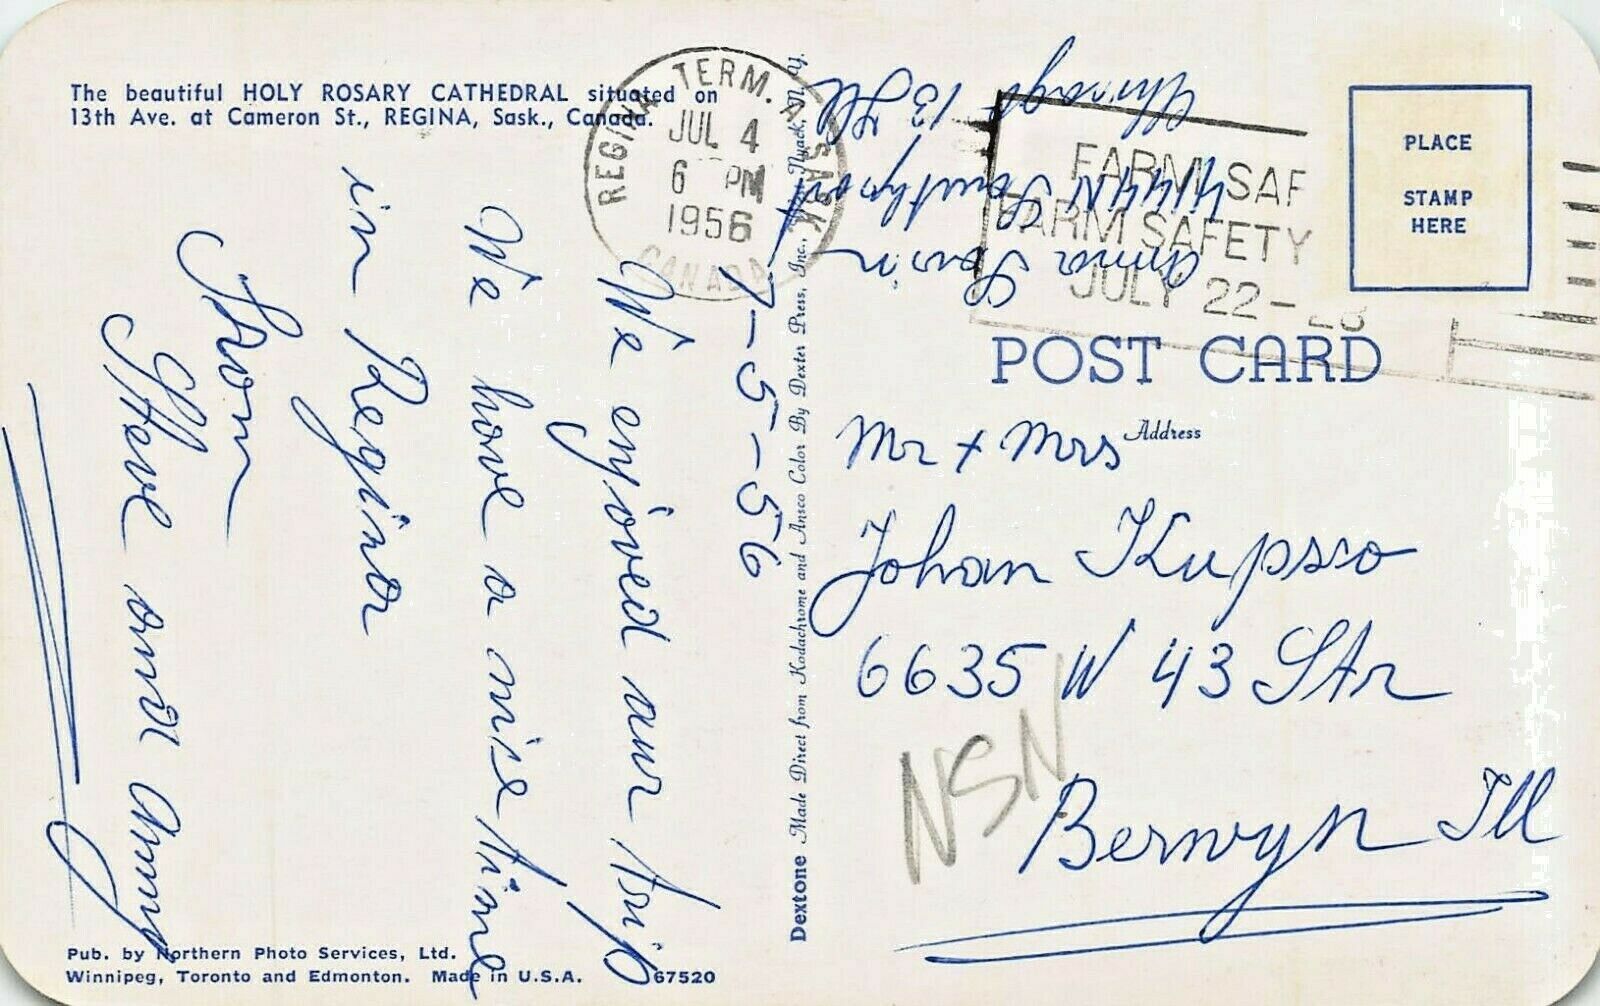 The beautiful HOLY ROSARY CATHEDRAL situated on
13th Ave. at Cameron St., REGINA, Sask., Canada.
REGINA TERM. A SASK
JUL 4
6 PM
1956
CANADA
FARM SAF
FARM SAFETY
JULY 22-28
PLACE
STAMP
HERE
Anna
4144 N
Chicago 13 Ill
7-5-56
We enjoved aur trip
We hove a nise time
in Regina
From
Steve and Anny
Dextone Made Direct from Kodachrome and Ansco Color By Dexter Press, Inc., Nyack, N. Y.
POST CARD
Address
Mr + Mrs
Johan Kupsso
6635 W 43 Str
Berwyn Ill
NSN
Pub. by Northern Photo Services, Ltd.
Winnipeg, Toronto and Edmonton. Made in U.S.A.
67520